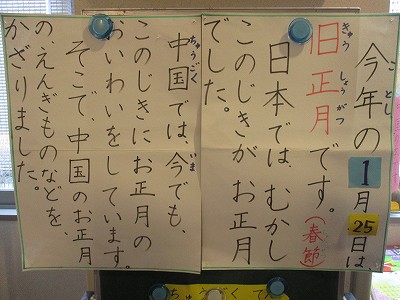 今年の1月25日は、
旧正月です。(春節)
日本では、むかし
このじきがお正月
でした。
中国では、今でも、
このじきにお正月の
おいわいをしています。
そこで、中国のお正月
のえんぎものなどを、
かざりました。
ちゅうごくてん